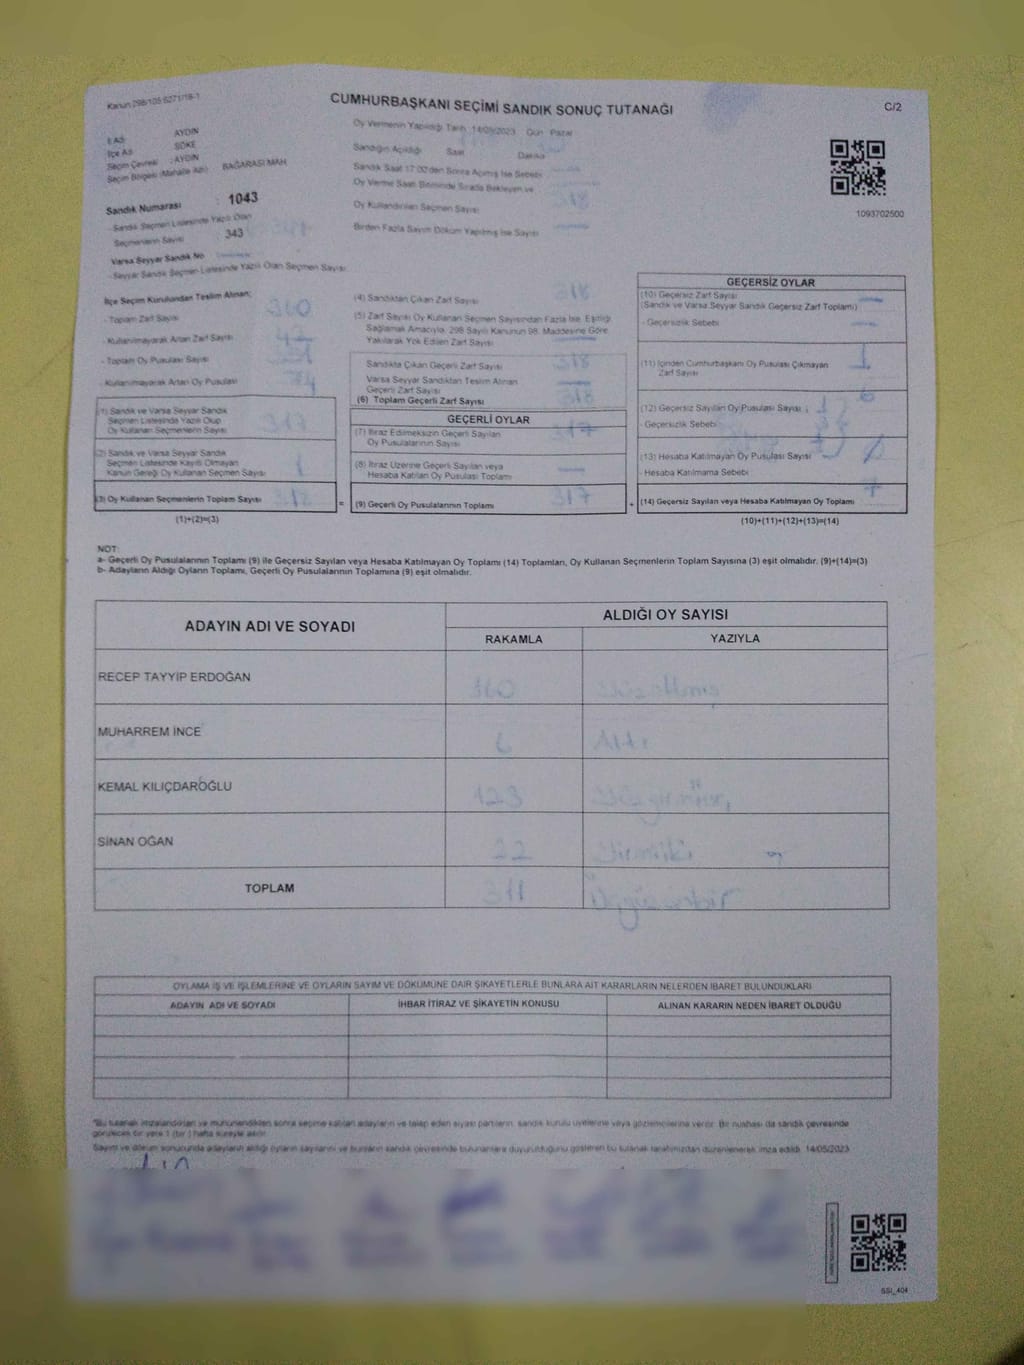 Kanun 298/105 6271/18-1
CUMHURBAŞKANI SEÇİMİ SANDIK SONUÇ TUTANAĞI
C/2
Oy Vermenin Yapıldığı Tarih 14/05/2023 Gün Pazar
İl Adı AYDIN
İlçe Adı SÖKE
Seçim Çevresi : AYDIN
Seçim Bölgesi (Mahalle Adı) BAĞARASI MAH
Sandık Numarası : 1043
- Sandık Seçmen Listesinde Yazılı Olan
Seçmenlerin Sayısı : 343
Varsa Seyyar Sandık No
- Seyyar Sandık Seçmen Listesinde Yazılı Olan Seçmen Sayısı:
Sandığın Açıldığı Saat Dakika
Sandık Saat 17:00'den Sonra Açılmış İse Sebebi
Oy Verme Saati Bitiminde Sırada Bekleyen ve
Oy Kullandırılan Seçmen Sayısı 318
Birden Fazla Sayım Döküm Yapılmış İse Sayısı
1093702500
İlçe Seçim Kurulundan Teslim Alınan;
- Toplam Zarf Sayısı 360
- Kullanılmayarak Artan Zarf Sayısı 42
- Toplam Oy Pusulası Sayısı
- Kullanılmayarak Artan Oy Pusulası 74
(1) Sandık ve Varsa Seyyar Sandık
Seçmen Listesinde Yazılı Olup
Oy Kullanan Seçmenlerin Sayısı 317
(2) Sandık ve Varsa Seyyar Sandık
Seçmen Listesinde Kayıtlı Olmayan
Kanun Gereği Oy Kullanan Seçmen Sayısı 1
(3) Oy Kullanan Seçmenlerin Toplam Sayısı 318
(1)+(2)=(3)
(4) Sandıktan Çıkan Zarf Sayısı 318
(5) Zarf Sayısı Oy Kullanan Seçmen Sayısından Fazla İse, Eşitliği
Sağlamak Amacıyla, 298 Sayılı Kanunun 98. Maddesine Göre
Yakılarak Yok Edilen Zarf Sayısı
Sandıkta Çıkan Geçerli Zarf Sayısı 318
Varsa Seyyar Sandıktan Teslim Alınan
Geçerli Zarf Sayısı
(6) Toplam Geçerli Zarf Sayısı 318
GEÇERLİ OYLAR
(7) İtiraz Edilmeksizin Geçerli Sayılan
Oy Pusulalarının Sayısı 317
(8) İtiraz Üzerine Geçerli Sayılan veya
Hesaba Katılan Oy Pusulası Toplamı
=
(9) Geçerli Oy Pusulalarının Toplamı 317
+
GEÇERSİZ OYLAR
(10) Geçersiz Zarf Sayısı
(Sandık ve Varsa Seyyar Sandık Geçersiz Zarf Toplamı)
- Geçersizlik Sebebi
(11) İçinden Cumhurbaşkanı Oy Pusulası Çıkmayan
Zarf Sayısı 1
(12) Geçersiz Sayılan Oy Pusulası Sayısı ;
Geçersizlik Sebebi
(13) Hesaba Katılmayan Oy Pusulası Sayısı
- Hesaba Katılmama Sebebi
(14) Geçersiz Sayılan veya Hesaba Katılmayan Oy Toplamı 7
(10)+(11)+(12)+(13)=(14)
NOT:
a- Geçerli Oy Pusulalarının Toplamı (9) ile Geçersiz Sayılan veya Hesaba Katılmayan Oy Toplamı (14) Toplamları, Oy Kullanan Seçmenlerin Toplam Sayısına (3) eşit olmalıdır. (9)+(14)=(3)
b- Adayların Aldığı Oyların Toplamı, Geçerli Oy Pusulalarının Toplamına (9) eşit olmalıdır.
ADAYIN ADI VE SOYADI
ALDIĞI OY SAYISI
RAKAMLA YAZIYLA
RECEP TAYYİP ERDOĞAN 160 Yüzaltmış
MUHARREM İNCE 6 Altı
KEMAL KILIÇDAROĞLU 123 Yüzyirmiüç
SİNAN OĞAN 22 Yirmiiki
TOPLAM 311 Üçyüzonbir
OYLAMA İŞ VE İŞLEMLERİNE VE OYLARIN SAYIM VE DÖKÜMÜNE DAİR ŞİKAYETLERLE BUNLARA AİT KARARLARIN NELERDEN İBARET BULUNDUKLARI
ADAYIN ADI VE SOYADI
İHBAR İTİRAZ VE ŞİKAYETİN KONUSU
ALINAN KARARIN NEDEN İBARET OLDUĞU
"Bu tutanak imzalandıktan ve mühürlendikten sonra seçime katılan adayların ve talep eden siyasi partilerin, sandık kurulu üyelerine veya gözlemcilerine verilir. Bir nüshası da sandık çevresinde
görülecek bir yere 1 (bir) hafta süreyle asılır.
Sayım ve döküm sonucunda adayların aldığı oyların sayılarını ve bunların sandık çevresinde bulunanlara duyurulduğunu gösteren bu tutanak tarafımızdan düzenlenerek imza edildi. 14/05/2023
SSI_404